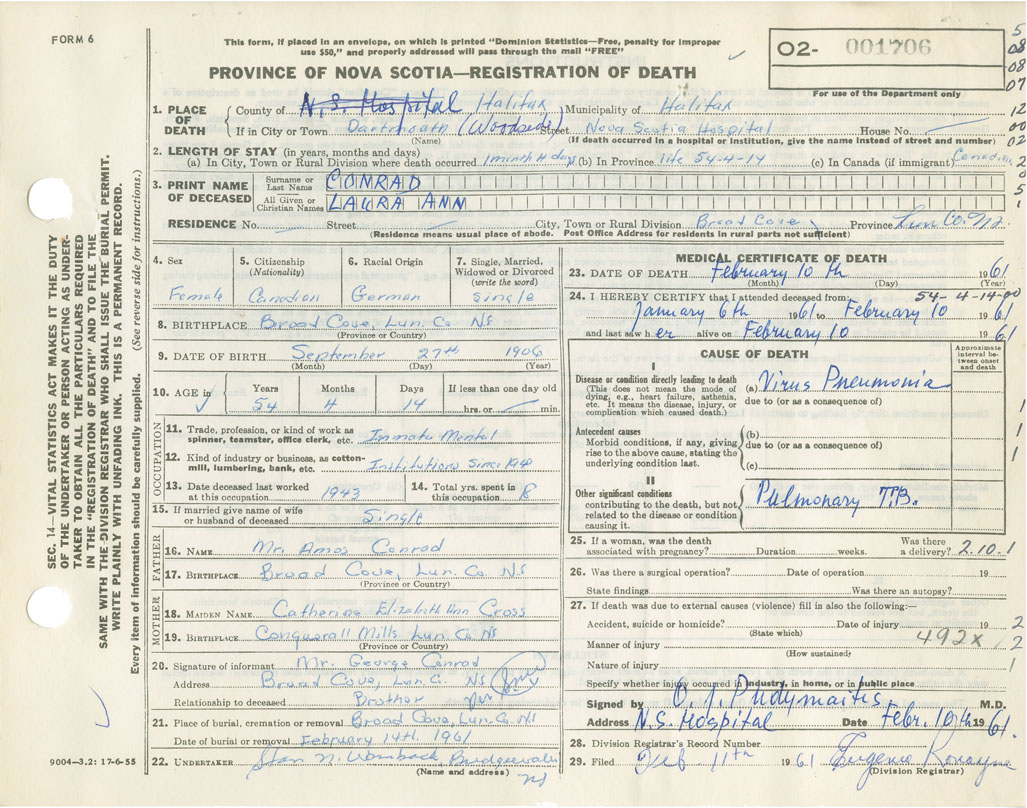 FORM 6
This form, if placed in an envelope, on which is printed "Dominion Statistics—Free, penalty for improper
use $50," and properly addressed will pass through the mail "FREE"
PROVINCE OF NOVA SCOTIA—REGISTRATION OF DEATH
02- 001706
For use of the Department only
SEC. 14—VITAL STATISTICS ACT MAKES IT THE DUTY
OF THE UNDERTAKER OR PERSON ACTING AS UNDER-
TAKER TO OBTAIN ALL THE PARTICULARS REQUIRED
IN THE "REGISTRATION OF DEATH" AND TO FILE THE
SAME WITH THE DIVISION REGISTRAR WHO SHALL ISSUE THE BURIAL PERMIT.
WRITE PLAINLY WITH UNFADING INK. THIS IS A PERMANENT RECORD.
Every item of information should be carefully supplied. (See reverse side for instructions.)
1. PLACE OF DEATH County of N.S. Hospital Halifax Municipality of Halifax
If in City or Town Dartmouth (Woodside) Street Nova Scotia Hospital House No.
(Name) (If death occurred in a hospital or institution, give the name instead of street and number)
2. LENGTH OF STAY (in years, months and days)
(a) In City, Town or Rural Division where death occurred 1 month 4 days (b) In Province life 54-4-14 (c) In Canada (if immigrant) Canadian
3. PRINT NAME OF DECEASED Surname or Last Name CONRAD
All Given or Christian Names LAURA ANN
RESIDENCE No. Street City, Town or Rural Division Broad Cove Province Lun Co. N.S.
(Residence means usual place of abode. Post Office Address for residents in rural parts not sufficient)
4. Sex Female
5. Citizenship (Nationality) Canadian
6. Racial Origin German
7. Single, Married, Widowed or Divorced (write the word) Single
8. BIRTHPLACE Broad Cove, Lun. Co. NS
(Province or Country)
9. DATE OF BIRTH September 27th 1906
(Month) (Day) (Year)
10. AGE in Years 54 Months 4 Days 14 If less than one day old hrs. or min.
OCCUPATION
11. Trade, profession, or kind of work as spinner, teamster, office clerk, etc. Inmate Mental
12. Kind of industry or business, as cotton-mill, lumbering, bank, etc. Institutions Since
13. Date deceased last worked at this occupation 1943
14. Total yrs. spent in this occupation 8
15. If married give name of wife or husband of deceased Single
FATHER
16. NAME Mr. Amos Conrad
17. BIRTHPLACE Broad Cove, Lun. Co. NS
(Province or Country)
MOTHER
18. MAIDEN NAME Catherine Elizabeth Ann Cross
19. BIRTHPLACE Conquerall Mills. Lun. Co. NS
(Province or Country)
20. Signature of informant Mr. George Conrad
Address Broad Cove, Lun. Co. NS
Relationship to deceased Brother
21. Place of burial, cremation or removal Broad Cove, Lun. Co. NS
Date of burial or removal February 14th. 1961
22. UNDERTAKER Bridgewater
(Name and address) NS
9004—3.2: 17-6-55
MEDICAL CERTIFICATE OF DEATH
23. DATE OF DEATH February 10th 1961
(Month) (Day) (Year)
24. I HEREBY CERTIFY that I attended deceased from: 54-4-14-00
January 6th 1961 to February 10 1961
and last saw her alive on February 10 1961
CAUSE OF DEATH
Approximate interval between onset and death
I
Disease or condition directly leading to death (This does not mean the mode of dying, e.g., heart failure, asthenia, etc. It means the disease, injury, or complication which caused death.)
(a) Virus Pneumonia
due to (or as a consequence of)
Antecedent causes
Morbid conditions, if any, giving rise to the above cause, stating the underlying condition last.
(b)
due to (or as a consequence of)
(c)
II
Other significant conditions contributing to the death, but not related to the disease or condition causing it.
Pulmonary T.B.
25. If a woman, was the death associated with pregnancy? Duration weeks. Was there a delivery? 2.10.1
26. Was there a surgical operation? Date of operation 19
State findings Was there an autopsy?
27. If death was due to external causes (violence) fill in also the following:—
Accident, suicide or homicide? Date of injury 19 2
(State which)
Manner of injury 492x 2
(How sustained)
Nature of injury 1
Specify whether injury occurred in industry, in home, or in public place
Signed by O. J. Pudymaitis M.D.
Address N.S. Hospital Date Febr. 10th 1961.
28. Division Registrar's Record Number
29. Filed Feb 11th 1961 Eugenie
(Division Registrar)